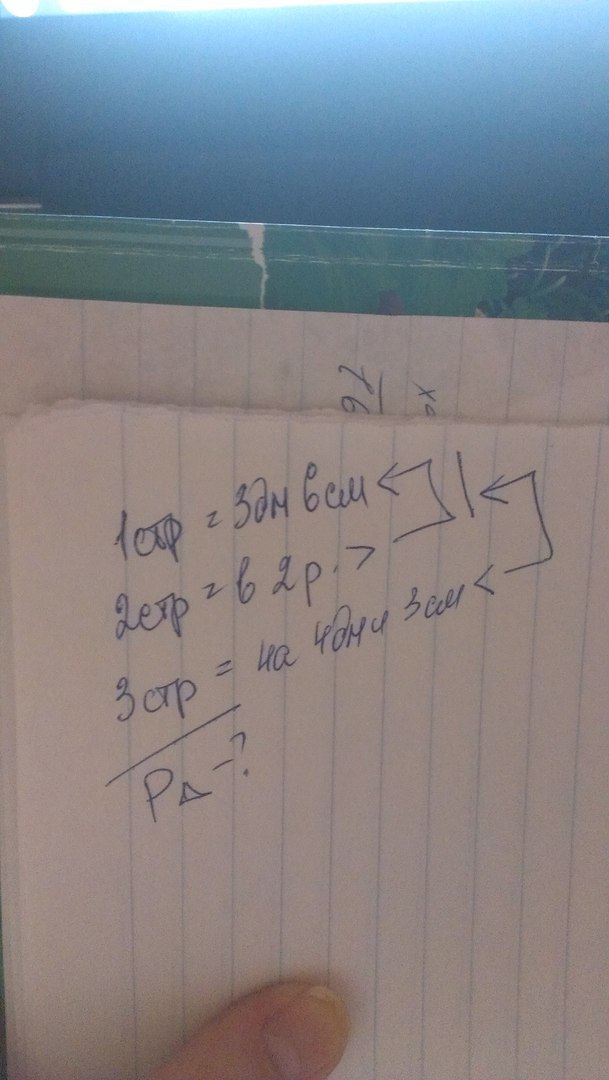 1стр = 3дм 6см
2стр = в 2р. >
3стр = на 4дм и 3см <
P△ - ?